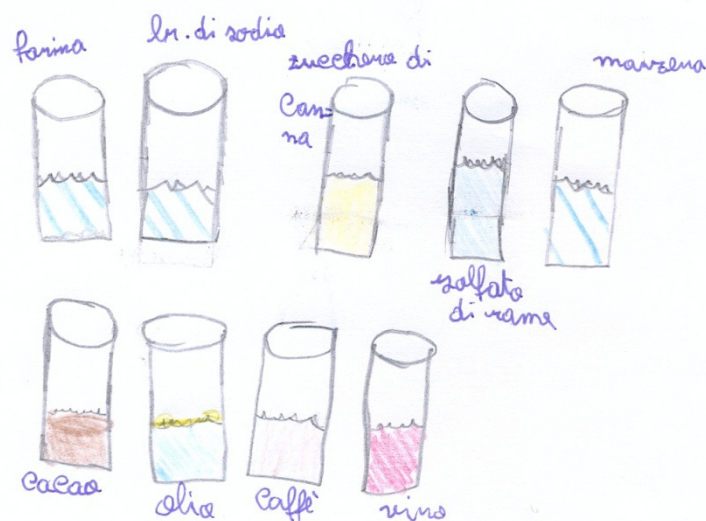 farina
br. di sodio
zucchero di
Can=
na
maizena
solfato
di rame
cacao
olio
caffè
vino